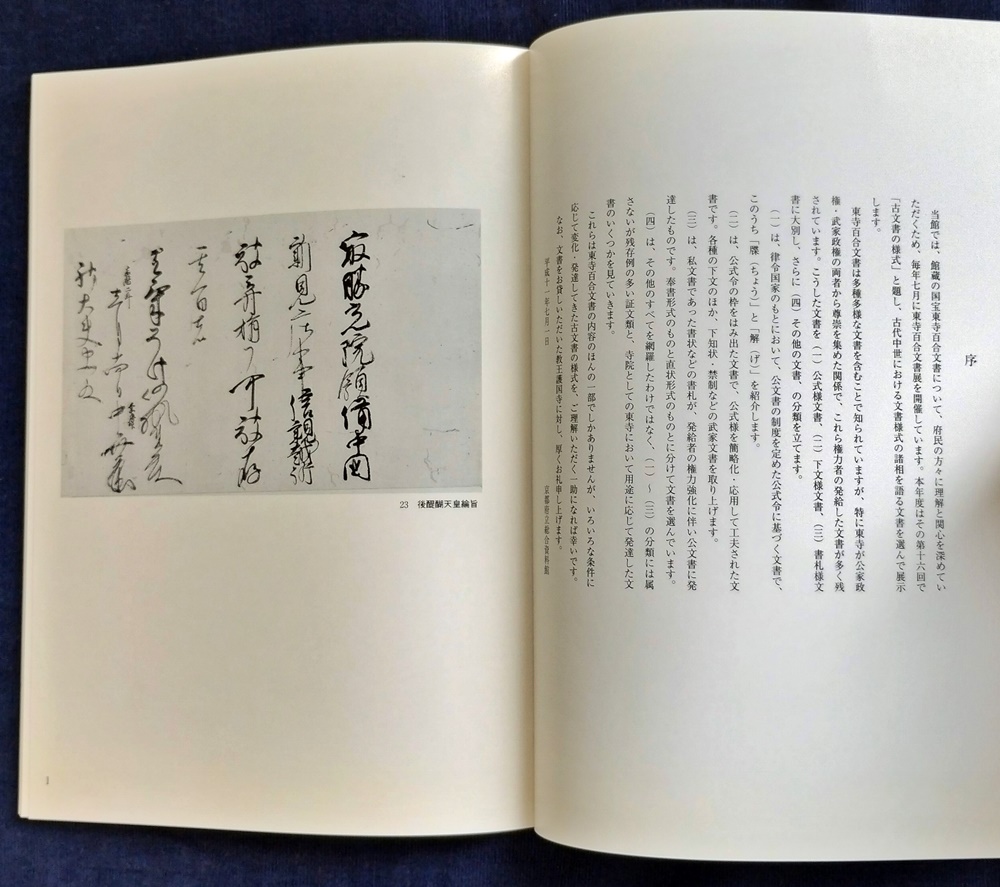 序
当館では、館蔵の国宝東寺百合文書について、府民の方々に理解と関心を深めてい
ただくため、毎年七月に東寺百合文書展を開催しています。本年度はその第十六回で
「古文書の様式」と題し、古代中世における文書様式の諸相を語る文書を選んで展示
します。
東寺百合文書は多種多様な文書を含むことで知られていますが、特に東寺が公家政
権・武家政権の両者から尊崇を集めた関係で、これら権力者の発給した文書が多く残
されています。こうした文書を（一）公式様文書、（二）下文様文書、（三）書札様文
書に大別し、さらに（四）その他の文書、の分類を立てます。
（一）は、律令国家のもとにおいて、公文書の制度を定めた公式令に基づく文書で、
このうち「牒（ちょう）」と「解（げ）」を紹介します。
（二）は、公式令の枠をはみ出た文書で、公式様を簡略化・応用して工夫された文
書です。各種の下文のほか、下知状、禁制などの武家文書を取り上げます。
（三）は、私文書であった書状などの書札が、発給者の権力強化に伴い公文書に発
達したものです。奉書形式のものと直状形式のものとに分けて文書を選んでいます。
（四）は、その他のすべてを網羅したわけではなく、（一）～（三）の分類には属
さないが残存例の多い証文類と、寺院としての東寺において用途に応じて発達した文
書のいくつかを見ていきます。
これらは東寺百合文書の内容のほんの一部でしかありませんが、いろいろな条件に
応じて変化・発達してきた古文書の様式を、ご理解いただく一助になれば幸いです。
なお、文書をお貸しいただいた教王護国寺に対し、厚くお礼申し上げます。
平成十一年七月一日
京都府立総合資料館
最勝光院領備中国
新見
23 後醍醐天皇綸旨
1